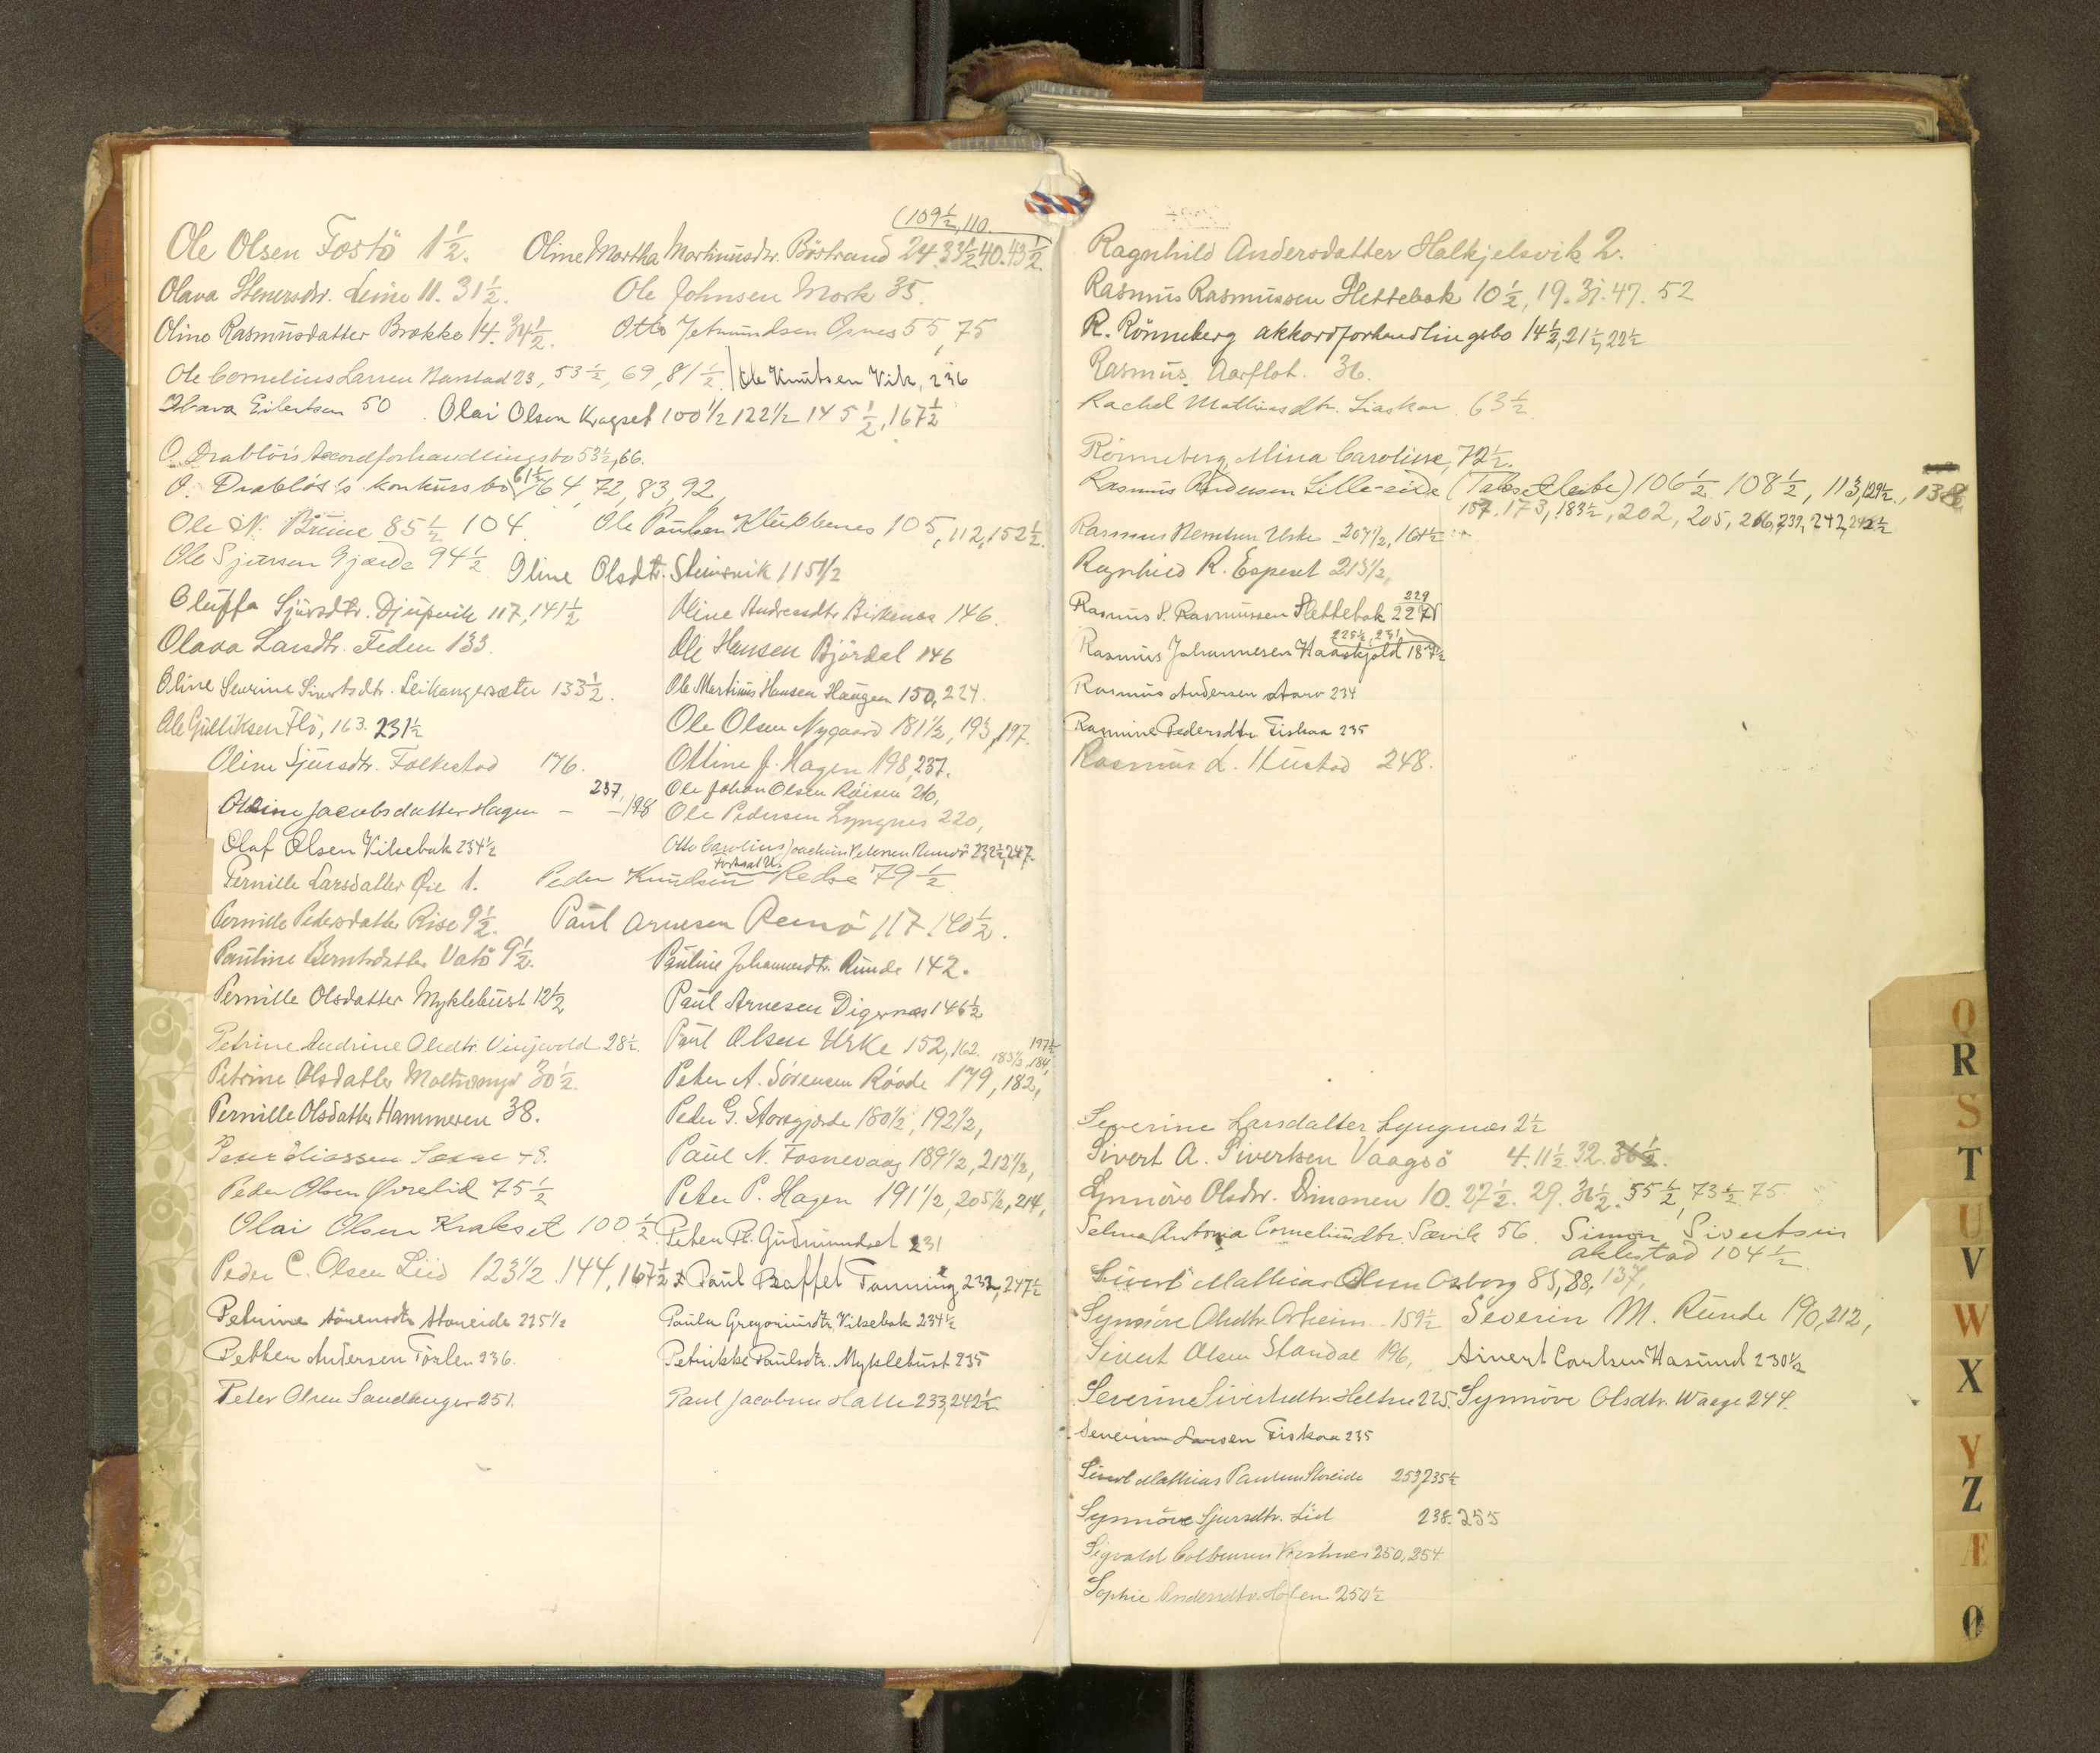 (109½, 110.
Ole Olsen Fostö 1½. Oline Martha Martinusdtr. Böstrand 24. 33½. 40. 43½.
Olava Stenersdtr. Leine 11. 31½. Ole Johnsen Mork 35.
Oline Rasmusdatter Brække 14. 34½. Otto Jetmundsen Osnes 55, 75
Ole Cornelius Larsen Barstad 23, 53½, 69, 81½. Ole Knutsen Vik, 236
Olava Eilertsen 50. Olai Olsen Kragset 100½ 122½ 145½, 167½
O. Drabløs's Accordforhandlingsbo 53½, 66.
O. Drabløs's konkursbo 61½ 64, 72, 83, 92,
Ole N. Brune 85½ 104. Ole Paulsen Kleppenes 105, 112, 152½.
Ole Sjursen Gjærde 94½ Oline Olsdtr. Steinsvik 115½
Oluffa Sjursdtr. Djupvik 117, 141½ Oline Andreasdtr. Birkenes 146.
Olava Larsdtr. Feden 133. Ole Hansen Bjørdal 146
Oline Severine Sivertsdtr. Leikangersæter 133½. Ole Martinus Hansen Haugen 150, 224.
Ole Gulliksen Flö, 163. 231½ Ole Olsen Nygaard 181½, 193, 197.
Oline Sjursdtr. Folkestad 176. Ottine J. Hagen 198, 237.
Ottine Jacobsdatter Hagen — 237, — 198 Ole Johan Olsen Röisen 210,
Ole Pedersen Lyngnes 220,
Olaf Olsen Vikebak 234½ Otto Carolius Joachim Petersen Runde 232½, 247.
Pernille Larsdatter Øie 1. Peder Knudsen Redse 79½
Pernille Pedersdatter Rise 9½. Paul Arnesen Remö 117. 140½.
Pauline Berntsdatter Vatö 9½. Pauline Johannesdtr. Runde 142.
Pernille Olsdatter Myklebust 12½ Paul Arnesen Digernes 146½
Petrine Andrine Olsdtr. Vinjevold 28½. Paul Olsen Urke 152, 162. 183½, 184, 197½
Petrine Olsdatter 30½. Peter A. Sörensen Råvde 179, 182,
Pernille Olsdatter Hammeren 38. Peder G. Storegjerde 180½, 192½,
Peter Eliassen 48. Paul N. Fosnevaag 189½, 212½,
Peder Olsen Øvrelid 75½ Peter P. Hagen 191½, 205½, 214,
Olai Olsen Krakset 100½. Peter Pt. Gudmundset 231
Peder C. Olsen Lied 123½. 144, 167½ Paul Baffel Tanning 232, 247½
Petrine Sörensdtr. Staneide 225½ Paula Gregoriusdtr. Vikebak 234½
Petter Andersen Törlen 236. Petrikke Paulsdtr. Myklebust 235
Peter Olsen Sandanger 251. Paul Jacobsen Halle 233, 242½
Ragnhild Andersdatter Halkjelsvik 2.
Rasmus Rasmussen Slettebak 10½, 19. 31. 47. 52
R. Rönneberg akkordforhandlingsbo 14½, 21½, 22½
Rasmus Aarflot. 36.
Rachel Mathiasdtr. Liaskar 63½
Rönneberg, Mina Caroline, 72½.
Rasmus Andersen Lille-eide 106½ 108½, 113, 129½, 138
157. 173, 183½, 202, 205, 216, 239, 242, 242½
Rasmus Urke 207½, 161½
Ragnhild R. Espeset 213½,
Rasmus P. Rasmussen Slettebak 227½ 229
Rasmus Johannesen Haaskjold 187½ 225½, 231
Rasmus Andersen Aarv 234
Rasmine Pedersdtr. Fiskaa 235
Rasmus L. Hustad 248.
Severine Larsdatter Lyngnes 2½
Sivert A. Sivertsen Vaagsö 4. 11½. 32. 36½.
Synnöve Olsdtr. Dimonen 10. 27½. 29. 36½. 55½, 73½. 75
Selma Antonia Corneliusdtr. Sævik 56. Simon Sivertsen
Aklestad 104½
Sivert Mathias Olsen Osborg 85, 88, 137,
Synnöve Olsdtr. Osheim 159½ Severin M. Runde 190, 212,
Sivert Olsen Standal 196, Sivert Carlsen Hasund 230½
Severine Sivertsdtr. Heltne 225. Synnöve Olsdtr. Waage 244.
Severin Larsen Fiskaa 235
Sivert Mathias Paulsen Storeide 253, 235½
Synnöve Sjursdtr. Lid 238. 255
Sigvald 250. 254.
Sophie Andersdtr. Holen 250½
Q
R
S
T
U
V
W
X
Y
Z
Æ
Ø